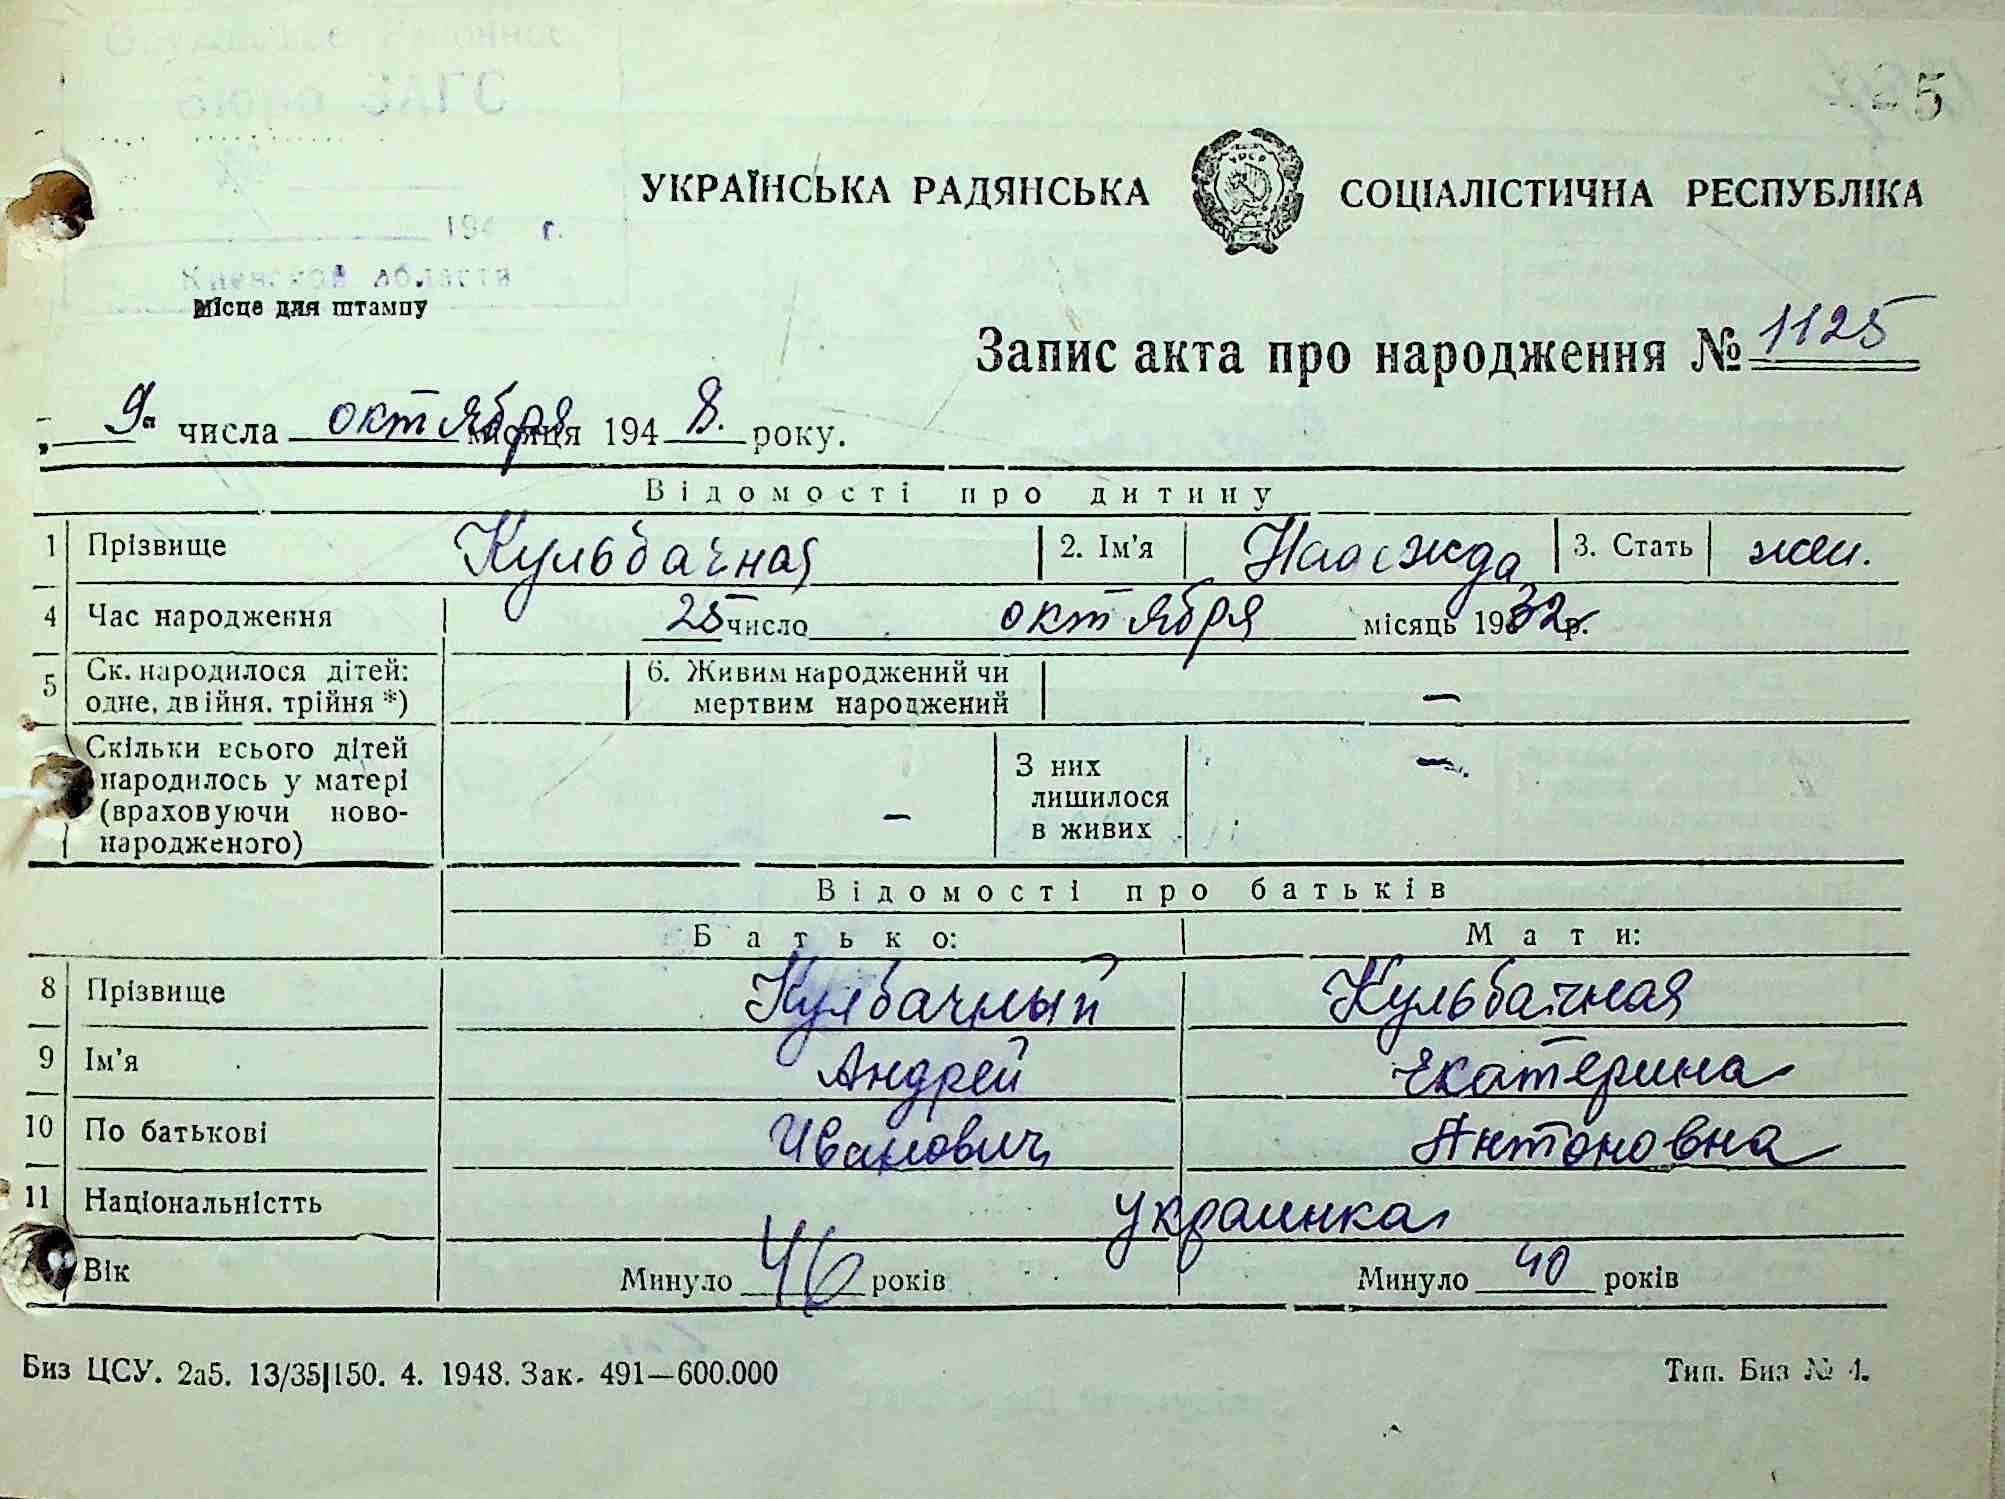 бюро ЗАГС
194 г.
Киевской области
Місце для штампу
5
УКРАЇНСЬКА РАДЯНСЬКА СОЦІАЛІСТИЧНА РЕСПУБЛІКА
Запис акта про народження № 1125
„ 9 " числа октября місяця 194 8. року.
Відомості про дитину
1 Прізвище Кульбачная 2. Ім'я Надежда 3. Стать жен.
4 Час народження 25 число октября місяць 1932 р.
5 Ск. народилося дітей: одне, двійня, трійня *) 6. Живим народжений чи мертвим народжений —
Скільки всього дітей народилось у матері (враховуючи ново-народженого) — З них лишилося в живих —
Відомості про батьків
Батько: Мати:
8 Прізвище Кулбачный Кульбачная
9 Ім'я Андрей Екатерина
10 По батькові Иванович Антоновна
11 Національністть украинка
Вік Минуло 46 років Минуло 40 років
Биз ЦСУ. 2а5. 13/35|150. 4. 1948. Зак. 491—600.000 Тип. Биз № 4.